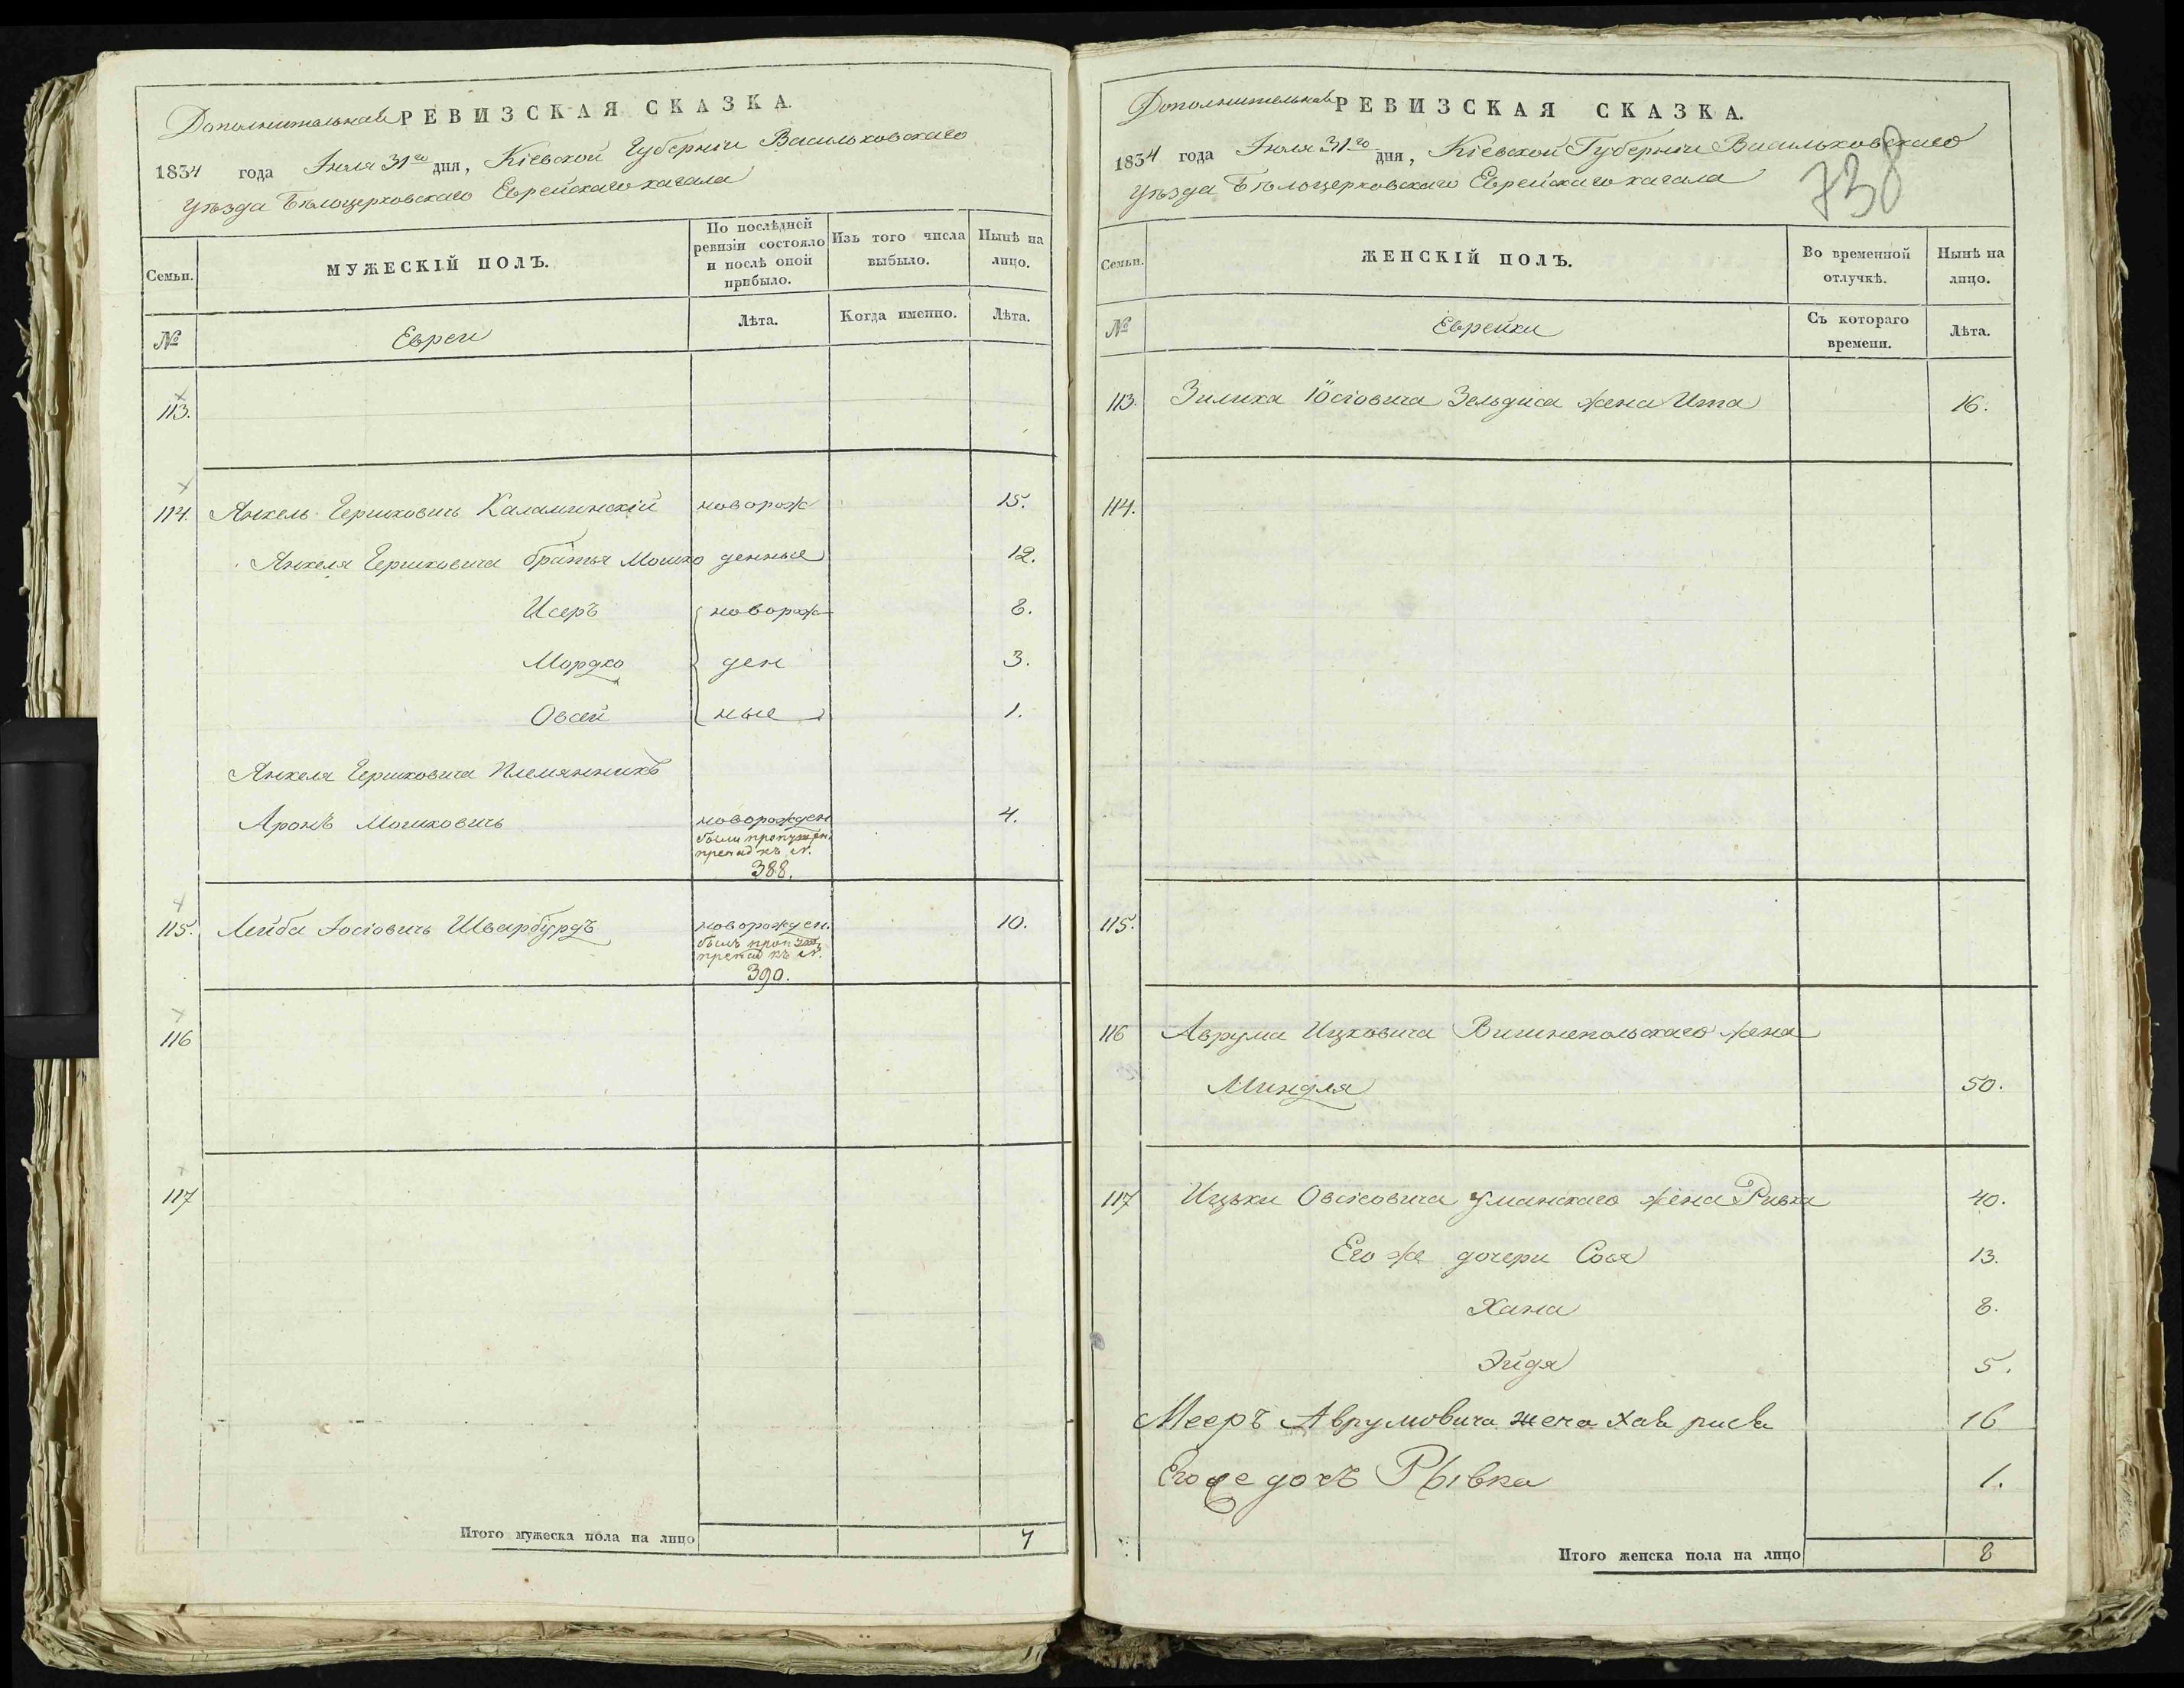 Дополнительная РЕВИЗСКАЯ СКАЗКА.
1834 года Іюля 31го дня, Кіевской Губерніи Васильковскаго
уѣзда Бѣлоцерковскаго Еврейскаго кагала
Семьи.
МУЖЕСКІЙ ПОЛЪ.
По послѣдней
ревизіи состояло
и послѣ оной
прибыло.
Изъ того числа
выбыло.
Нынѣ на
лицо.
№
Евреи
Лѣта.
Когда именно.
Лѣта.
113.
114. Янкель Гершковичъ Каламинскій новорож 15.
Янкеля Гершковича братья Мошко денные 12.
Исеръ новорож 8.
Мордко ден 3.
Овсей ные 1.
Янкеля Гершковича племянникъ
Аронъ Мошковичъ новорожден 4.
были пропущен.
къ №.
388.
115. Лейба Іосіовичъ Шварбурдъ новорожден. 10.
былъ
къ №.
390.
116
117
Итого мужеска пола на лицо 7
Дополнительная РЕВИЗСКАЯ СКАЗКА.
738
1834 года Іюля 31го дня, Кіевской Губерніи Васильковскаго
уѣзда Бѣлоцерковскаго Еврейскаго кагала
Семьи.
ЖЕНСКІЙ ПОЛЪ.
Во временной
отлучкѣ.
Нынѣ на
лицо.
№
Еврейки
Съ котораго
времени.
Лѣта.
113. Зилика Іосіовича Зельдиса жена Ита 16.
114.
115.
116 Аврума Ицковича Вишнепольскаго жена
Миндля 50.
117 Ицьки Овсіовича Уманскаго жена Ривка 40.
Его же дочери Сося 13.
Хана 8.
Эйдя 5.
Мееръ Аврумовича жена 16
Его же дочъ Рывка 1.
Итого женска пола на лицо 8